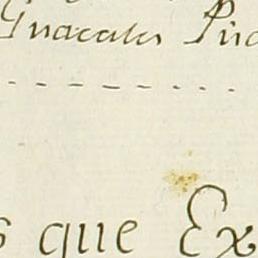 Guacales Pina
s que Ex